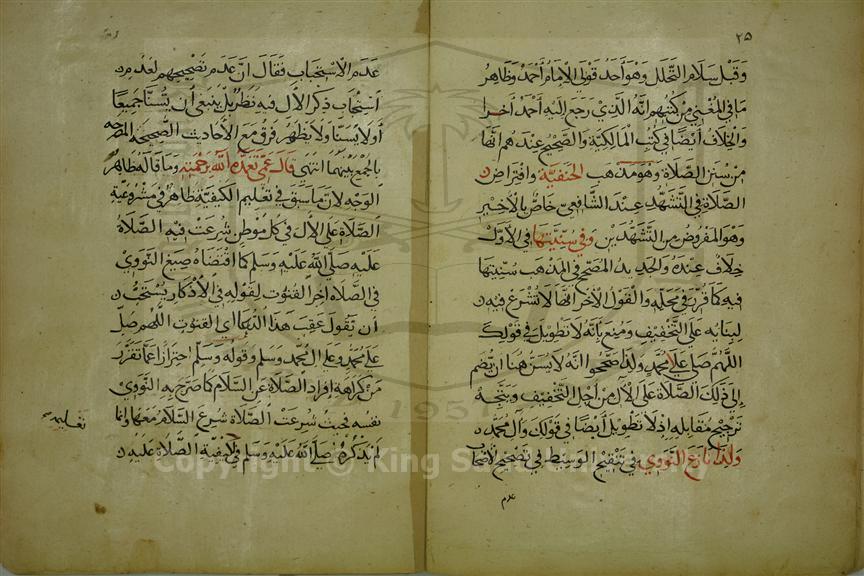 ٢٥
وقبل سلام التحلل وهو أحد قولي الإمام أحمد وظاهر
ما في المغني من كتبهم أنه الذي رجع إليه أحمد أخرا
والخلاف أيضا في كتب المالكية والصحيح عندهم أنها
من سنن الصلاة وهو مذهب الحنفية وافتراض
الصلاة في التشهد عند الشافعي خاص بالأخير
وهو المفروض من التشهدين وفي سنيتها في الأول
خلاف عنده والجديد المصحح في المذهب سنيتها
فيه كما قرر في محله والقول الآخر أنها لا تشرع فيه
لبنايه على التخفيف ومنع بأنه لا تطويل في قولك
اللهم صل على محمد ولذا صححوا أنه لا يسن هنا أن تضم
إلى ذلك الصلاة على الآل من أجل التخفيف ويتجه
ترجيح مقابله إذ لا تطويل أيضا في قولك وآل محمد
ولذا نازع النووي في تنقيح الوسيط في تصحيح الأصحاب
عدم
عدم الاستحباب فقال إن عدم تصحيحهم لعدم
استحباب ذكر الآل فيه نظر بل ينبغي أن يسنا جميعا
أو لا يسنا ولا يظهر فرق مع الأحاديث الصحيحة المصرحه
بالجمع بينهما انتهى قال عمي تغمده الله برحمته وما قاله ظاهر
الوجه لأن ما سبق في تعليم الكيفية ظاهر في مشروعية
الصلاة على الآل في كل موطن شرعت فيه الصلاة
عليه صلى الله عليه وسلم كما اقتضاه صيغ النووي
في الصلاة آخر القنوت لقوله في الأذكار يستحب
أن تقول عقب هذا الدعا أي القنوت اللهم صل
على محمد وعلى آل محمد وسلم وقوله وسلم احتراز عما تقرر
من كراهة إفراد الصلاة عن السلام كما صرح به النووي
نفسه فحيث شرعت الصلاة شرع السلام معها وإنما
لم يذكره صلى الله عليه وسلم في كيفية الصلاة عليه
Copyright © King Saud
1957